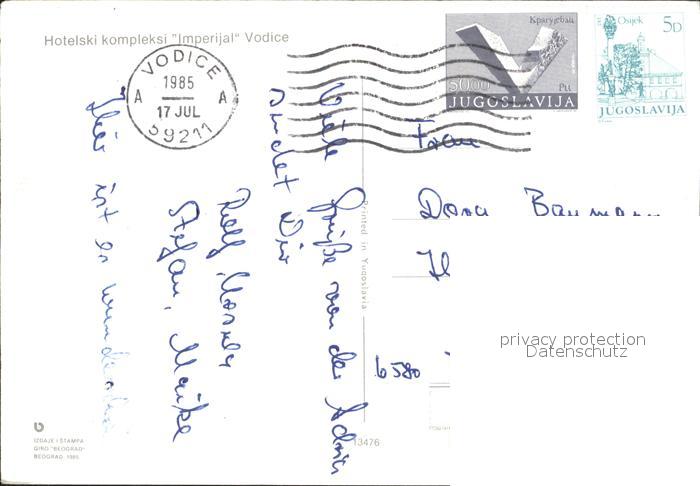 Hotelski kompleksi "Imperijal" Vodice
VODICE
1985
A A
17 JUL
59211
Крагујевац
50.00
Ptt
JUGOSLAVIJA
Osijek
5D
JUGOSLAVIJA
Viele Grüße von der Adria
sendet Dir
Rolf,
Stefan, Maike
Hier ist es
Frau
Dora Baumann
H
6580
Printed in Yugoslavia
privacy protection
Datenschutz
13476
IZDAJE I ŠTAMPA
GIRO "BEOGRAD"
BEOGRAD, 1985.